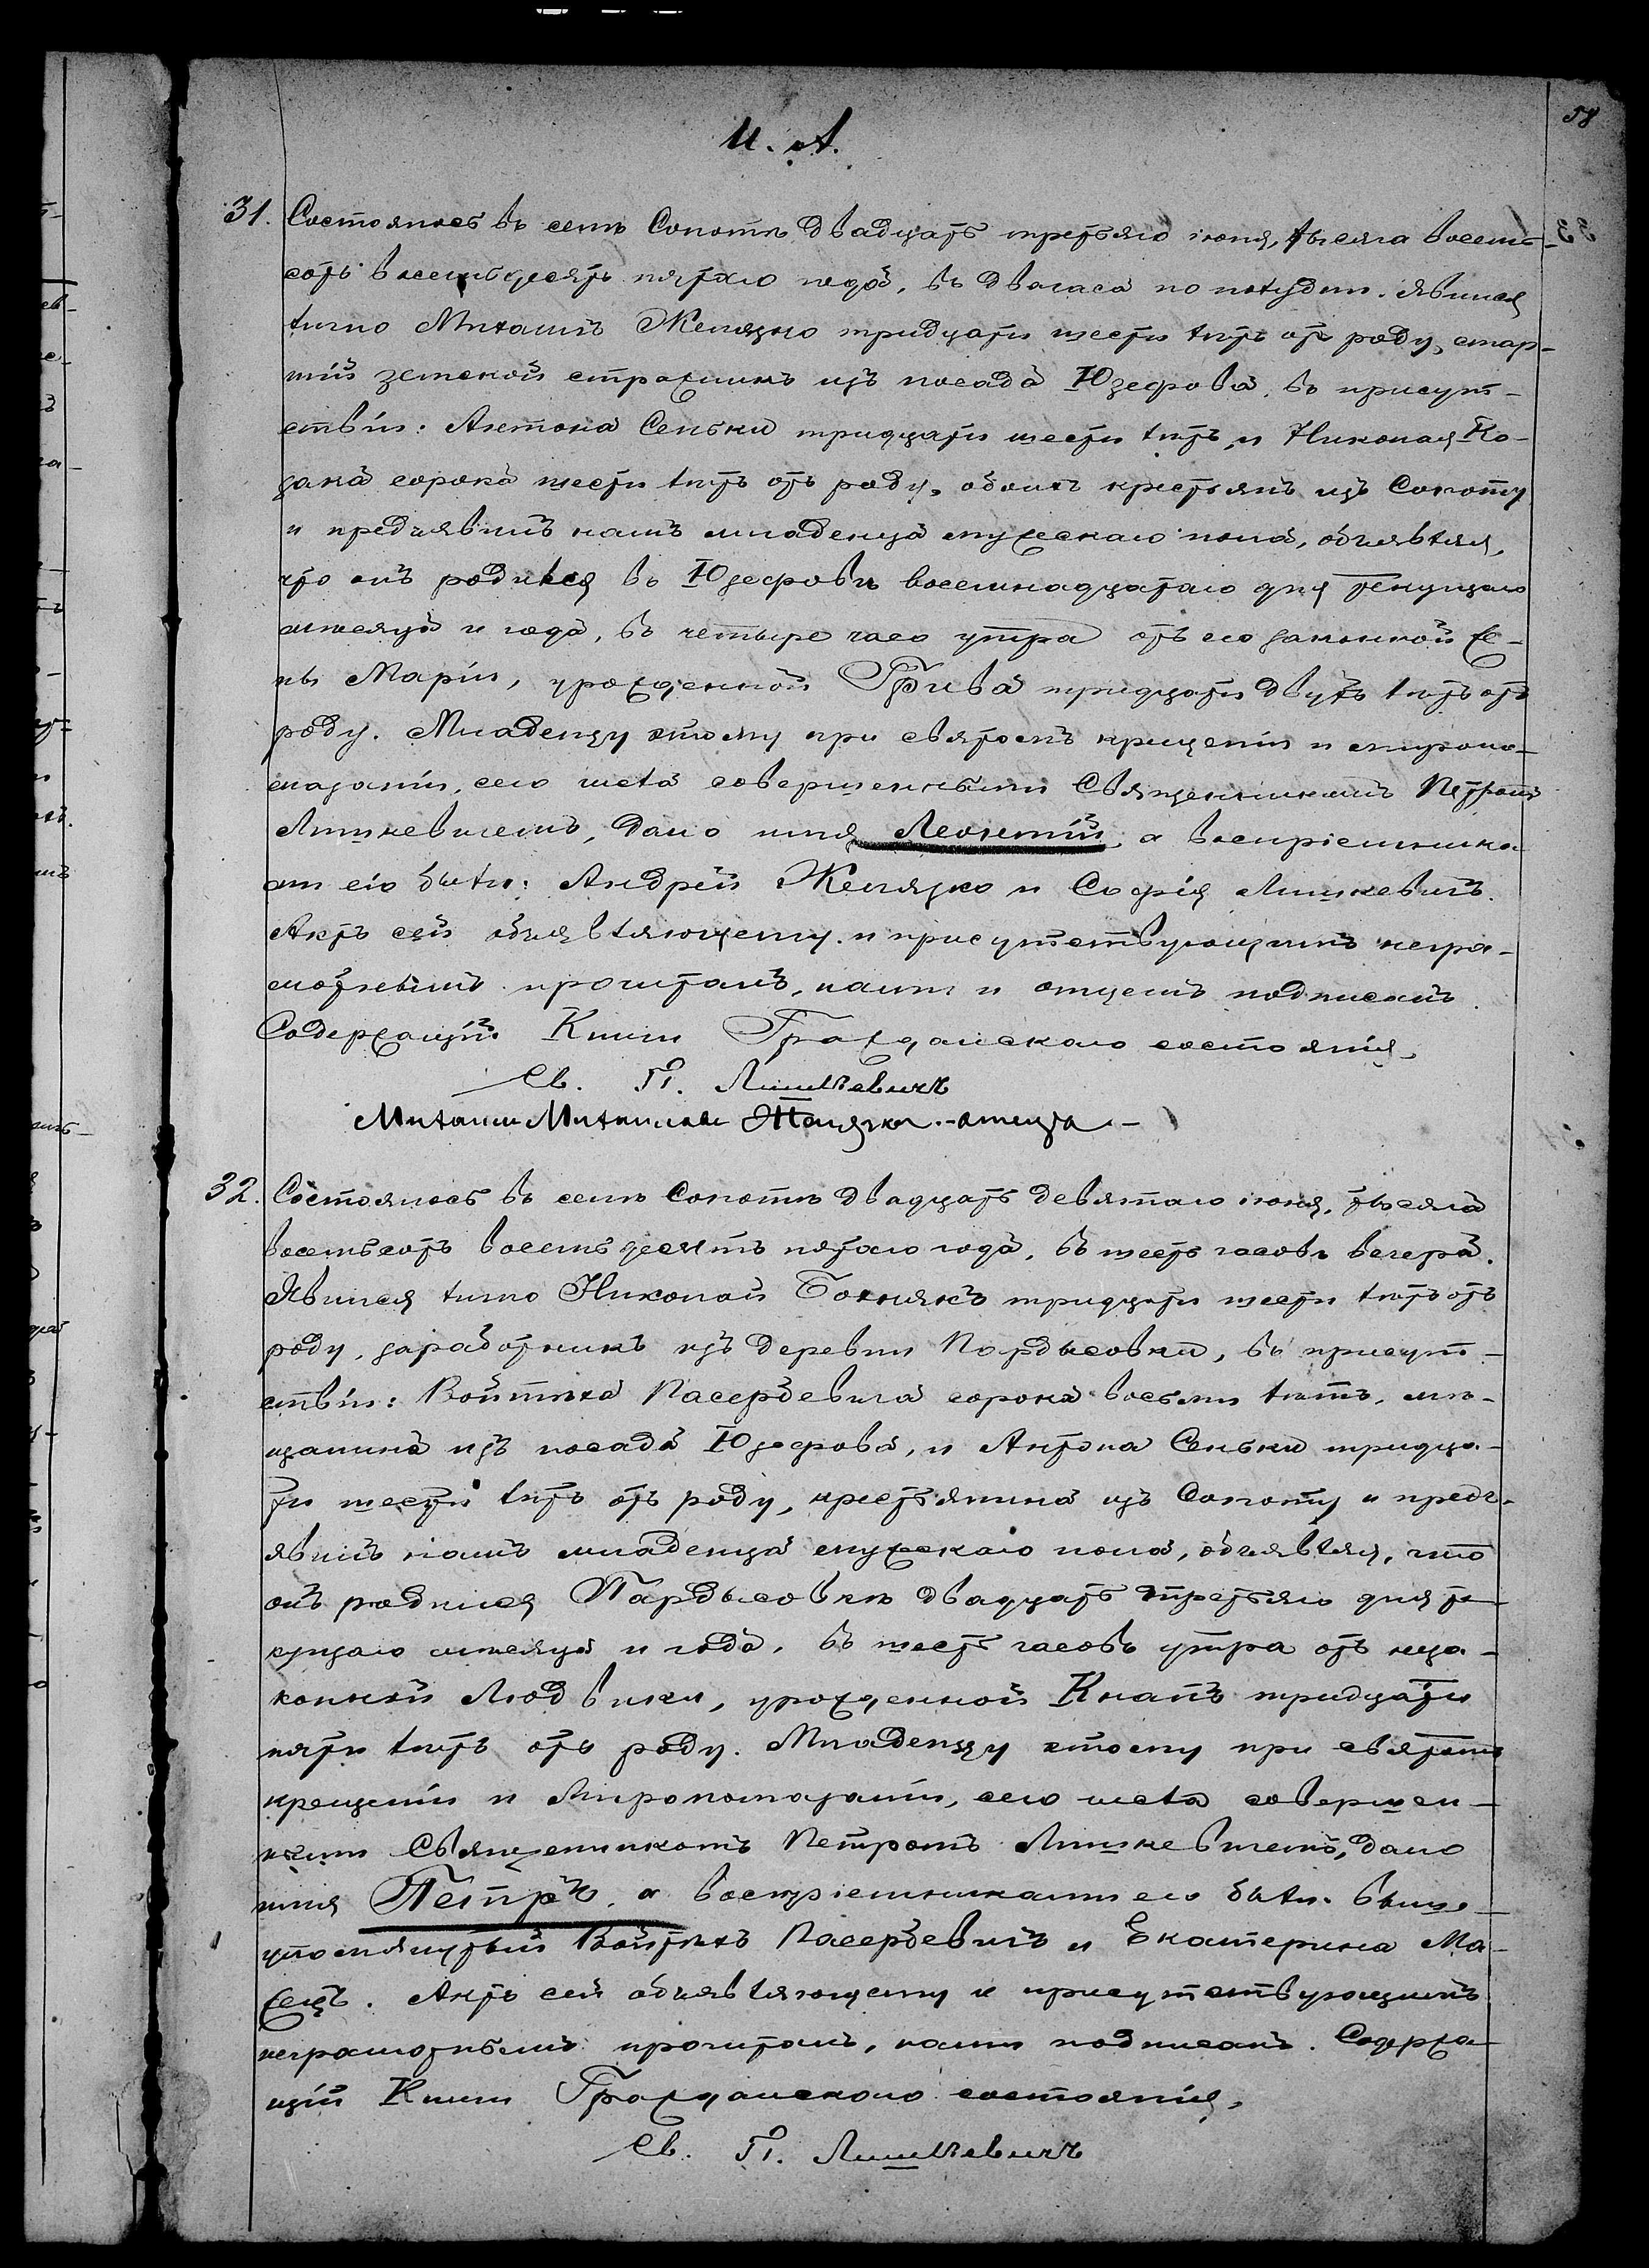 58
И. А.
31. Состоялось въ селѣ Сопотѣ двадцать третьяго іюня, тысяча восемь-
сотъ восемьдесятъ пятаго года, въ два часа по полудни. Явился
лично Михаилъ Желязко тридцати шести лѣтъ отъ роду, стар-
шій земской стражникъ изъ посада Юзефова, въ присут-
ствіи: Антона Сеньки тридцати шести лѣтъ, и Николая Ко-
зака сорока шести лѣтъ отъ роду, обоихъ крестьянъ изъ Сопоту
и предъявилъ намъ младенца мужескаго пола, объявляя,
что онъ родился въ Юзефовѣ восемнадцатаго дня текущаго
мѣсяца и года, въ четыре часа утра отъ его законной же-
ны Маріи, урожденной Грива тридцати двухъ лѣтъ отъ
роду. Младенцу этому при святомъ крещеніи и миропо-
мазаніи, сего числа совершенными Священникомъ Петромъ
Лишкевичемъ, дано имя Леонтій, а воспріемника-
ми его были: Андрей Желязко и Софія Лишкевичъ.
Актъ сей объявляющему и присутствующимъ негра-
мотнымъ прочитанъ, нами и отцемъ подписанъ.
Содержащій Книги Гражданскаго состоянія,
Св. П. Лишкевичъ
Михаилъ Желязко - отецъ -
32. Состоялось въ селѣ Сопотѣ двадцать девятаго іюня, тысяча
восемьсотъ восемьдесятъ пятаго года, въ шесть часовъ вечера.
Явился лично Николай тридцати шести лѣтъ отъ
роду, заработникъ изъ деревни Пардысовки, въ присут-
ствіи: Войтѣха Пасердевича сорока восьми лѣтъ, мѣ-
щанина изъ посада Юзефова, и Антона Сеньки тридца-
ти шести лѣтъ отъ роду, крестьянина изъ Сопоту и предъ-
явилъ намъ младенца мужескаго пола, объявляя, что
онъ родился Пардысовкѣ двадцать третьяго дня те-
кущаго мѣсяца и года, въ шесть часовъ утра отъ
конной Людвики, урожденной Кнапъ тридцати
пяти лѣтъ отъ роду. Младенцу этому при святомъ
крещеніи и миропомазаніи, сего числа совершен-
ными Священникомъ Петромъ Лишкевичемъ, дано
имя Петръ, а воспріемниками его были: выше-
упомянутый Войтѣхъ Пасердевичъ и Екатерина Ма-
жецъ. Актъ сей объявляющему и присутствующимъ
неграмотнымъ прочитанъ, нами подписанъ. Содержа-
щій Книги Гражданскаго состоянія,
Св. П. Лишкевичъ